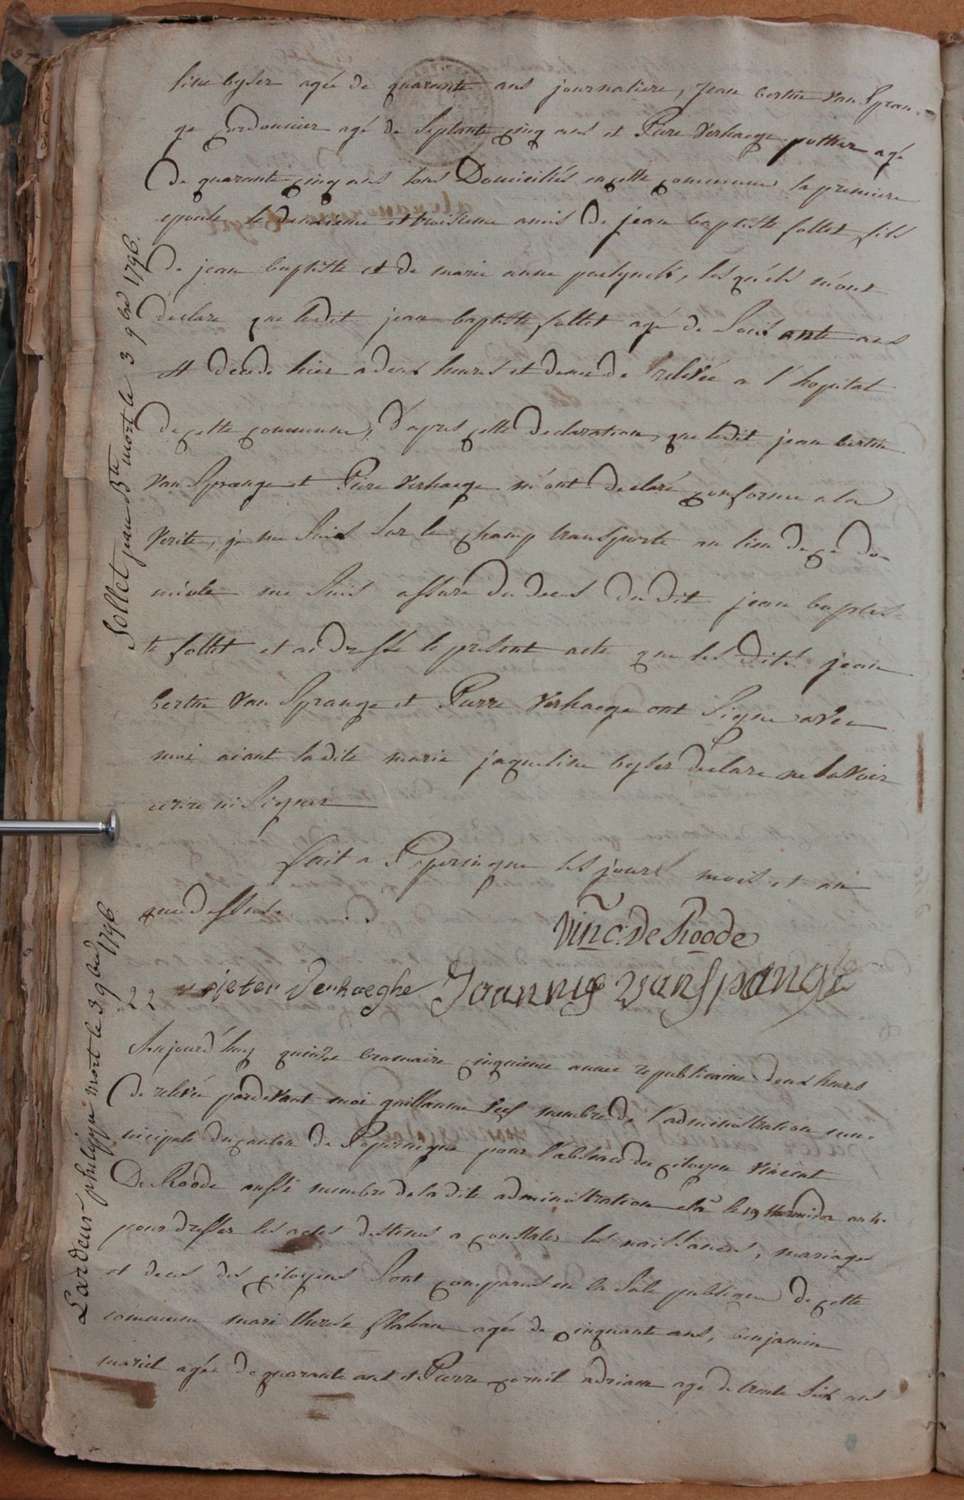 line byser agée de quarante ans journaliere, jean bertin van Spran-
ge cordonnier agé de Septante cinq ans et Piere Verhaege potier agé
de quarante cinq ans tous Domiciliés en cette commune la premiere
epouse le deuxieme et troisieme amis de jean baptiste follet fils
de jean baptiste et de marie anne, lesquels m'ont
déclaré que ledit jean baptiste follet agé de Soixante ans
et decedé hier a deux heures et demie de relevée a l'hopital
de cette commune, d'apres cette declaration, que ledit jean bertin
van Sprange et Piere Verhaege m'ont declaré conforme a la
verité, je me Suis Sur le champ transporté au lieu de ce do-
micile me Suis assuré du deces du dit jean baptis-
te follet et ai dressé le present acte que les dits jean
bertin van Sprange et Pierre Verhaege ont Signe avec
moi aiant la dite marie jaqueline byser declaré ne Savoir
ecrire ni Signer
fait a Poperingue les jours mois et an
que dessus
Vinc: De Roode
pieter Verhaeghe Joannis van Sprange
Aujourd'huy quinze brumaire cinquieme année republicaine deux heures
de relevée pardevant moi guillaume membre de l'administration mu-
nicipale du canton de Poperingue pour l'absence du citoyen vincent
De Roode aussi membre de la dite administration elu le 19 thermidor an 4
pour dresser les actes destinés a constater les naissances, mariages
et deces des citoyens Sont comparus en la Sale publique de cette
commune marie therese agée de cinquante ans, benjamin
mariel agé de quarante ans et Pierre cornil adriaen agé de trente Six ans
follet jean Bte mort le 3 9bre 1796.
Lardeur philippe mort le 3 9bre 1796